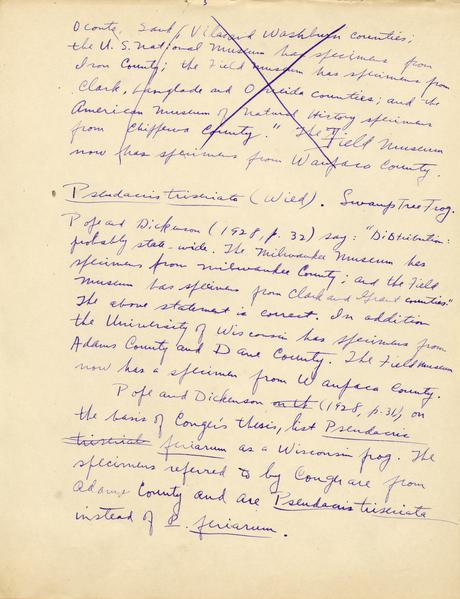 3
Oconto, Sauk, Vilas and Washburn counties;
the U. S. National Museum has specimens from
Iron County; the Field Museum has specimens from
Clark, Langlade and Oneida counties; and the
American Museum of Natural History specimens
from Chippewa County." The Field Museum
now has specimens from Waupaca County.
Pseudacris triseriata (Wied). Swamp Tree Frog.
Pope and Dickinson (1928, p. 32) say: "Distribution:
probably state-wide. The Milwaukee Museum has
specimens from Milwaukee County; and the Field
Museum has specimens from Clark and Grant counties."
The above statement is correct. In addition
the University of Wisconsin has specimens from
Adams County and Dane County. The Field Museum
now has a specimen from Waupaca County.
Pope and Dickinson on th (1928, p. 31), on
the basis of Congers thesis, list Pseudacris
triseriata feriarum as a Wisconsin frog. The
specimens referred to by Conger are from
Adams County and are Pseudacris triseriata
instead of P. feriarum.